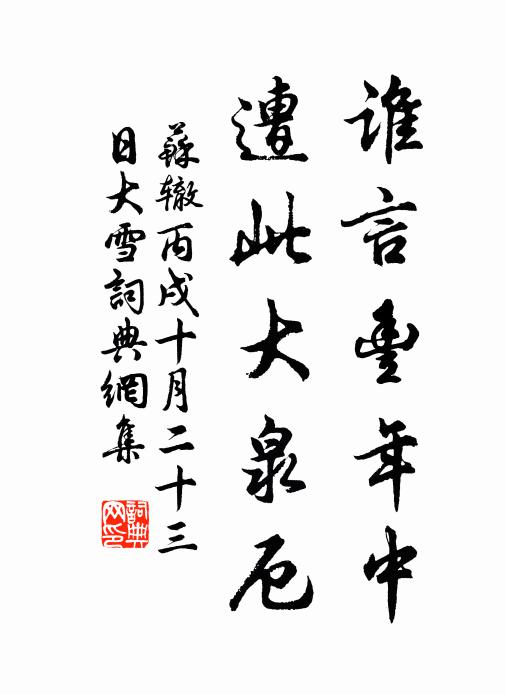 誰言豐年中
遭此大泉厄
蘇轍丙戌十月二十三
日大雪詞典網集
詞典网印